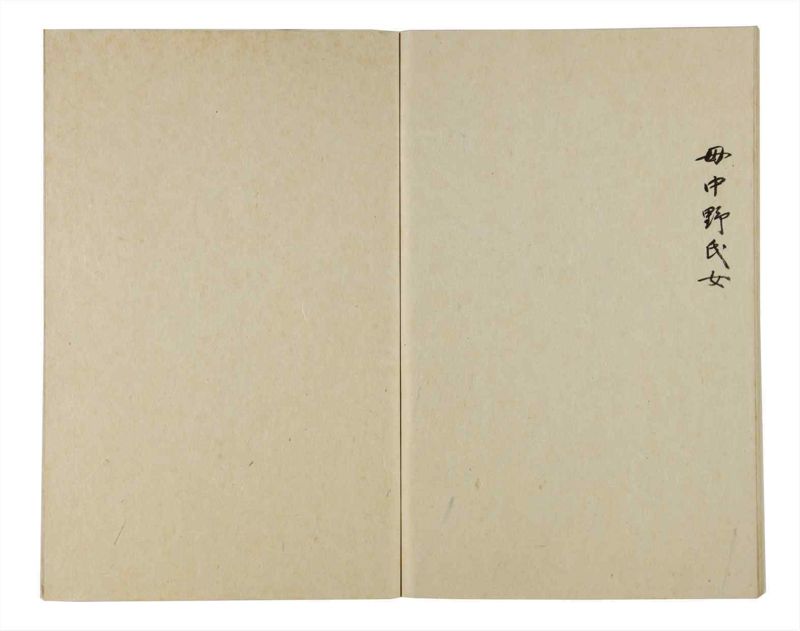 母中野氏女